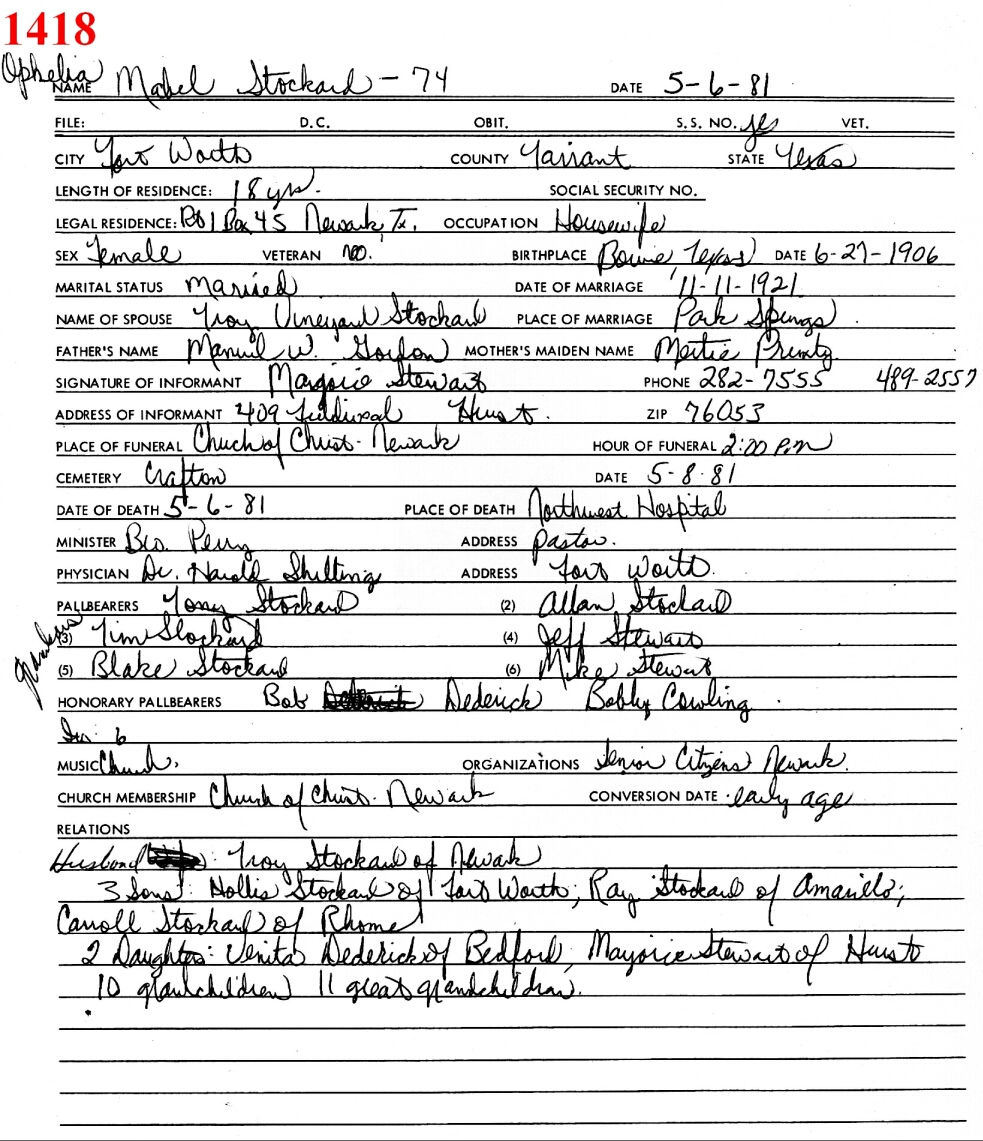 1418
Ophelia
NAME Mabel Stockard - 74 DATE 5-6-81
FILE: D.C. OBIT. S.S. NO. VET.
CITY Fort Worth COUNTY Tarrant STATE Texas
LENGTH OF RESIDENCE: 18 yrs. SOCIAL SECURITY NO.
LEGAL RESIDENCE: Rt 1 Box 45 Newark Tx. OCCUPATION Housewife
SEX Female VETERAN no. BIRTHPLACE Bowie Texas DATE 6-27-1906
MARITAL STATUS Married DATE OF MARRIAGE 11-11-1921
NAME OF SPOUSE Troy Vineyard Stockard PLACE OF MARRIAGE Park Springs
FATHER'S NAME Manuil W. Gordon MOTHER'S MAIDEN NAME Mertie
SIGNATURE OF INFORMANT Marjorie Stewart PHONE 282-7555 489-2557
ADDRESS OF INFORMANT 409 Hurst. ZIP 76053
PLACE OF FUNERAL Chuch of Christ - Newark HOUR OF FUNERAL 2:00 P.m
CEMETERY Crafton DATE 5-8-81
DATE OF DEATH 5-6-81 PLACE OF DEATH Northwest Hospital
MINISTER Bro. Perry ADDRESS pastor.
PHYSICIAN Dr. Harold Shilling ADDRESS Fort Worth.
PALLBEARERS Tony Stockard (2) Allan Stockard
(3) Tim Stockard (4) Jeff Stewart
(5) Blake Stockard (6) Mike Stewart
HONORARY PALLBEARERS Bob Dederick Bobby Cowling
6
MUSIC Church. ORGANIZATIONS Senior Citizens Newark.
CHURCH MEMBERSHIP Church of Christ - Newark CONVERSION DATE early age
RELATIONS
Husband : Troy Stockard of Newark
3 Sons: Hollis Stockard of Fort Worth; Ray Stockard of Amarillo;
Carroll Stockard of Rhome
2 Daughters: Venita Dederick of Bedford; Marjorie Stewart of Hurst
10 grandchildren 11 great grandchildren.